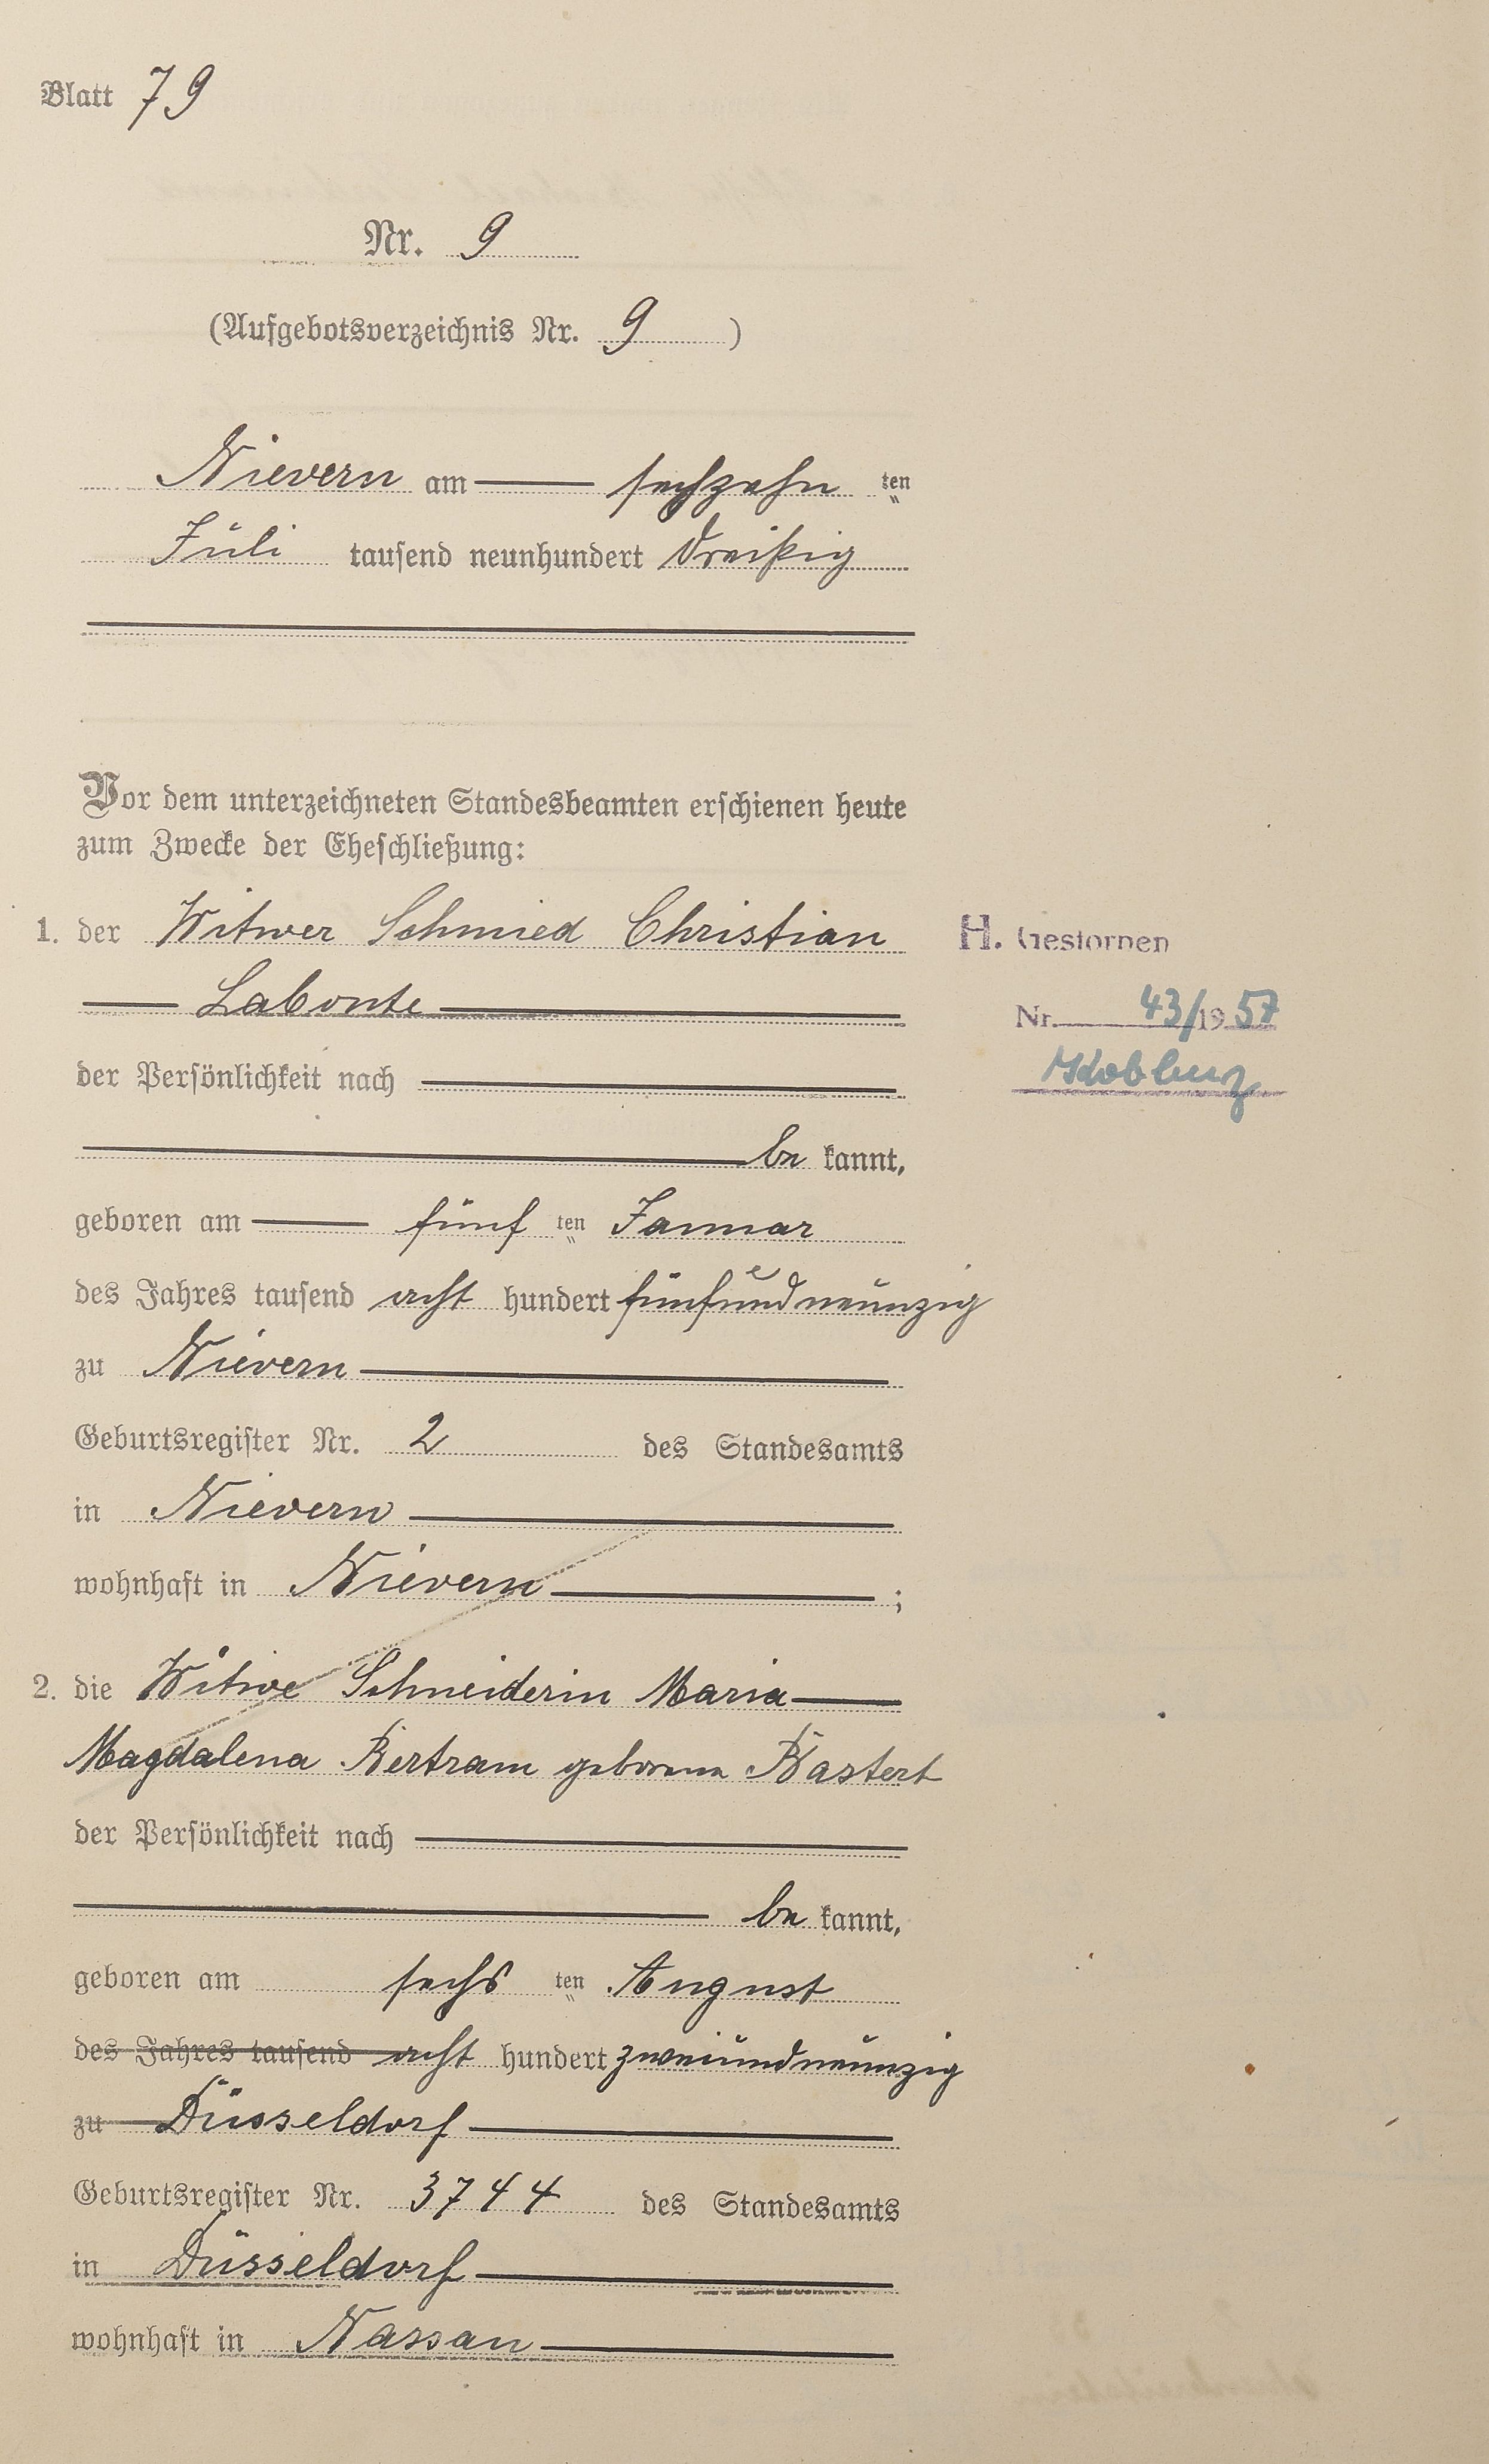 Blatt 79
Nr. 9
(Aufgebotsverzeichnis Nr. 9 )
Nievern am sechzehn ten
Juli tausend neunhundert dreißig
Vor dem unterzeichneten Standesbeamten erschienen heute
zum Zwecke der Eheschließung:
1. der Witwer Schmied Christian
Labonte
der Persönlichkeit nach
be kannt,
geboren am fünf ten Januar
des Jahres tausend acht hundert fünfundneunzig
zu Nievern
Geburtsregister Nr. 2 des Standesamts
in Nievern
wohnhaft in Nievern ;
2. die Witwe Schneiderin Maria
Magdalena Bertram geborene Bastert
der Persönlichkeit nach
be kannt,
geboren am sechs ten August
des Jahres tausend acht hundert zweiundneunzig
zu Düsseldorf
Geburtsregister Nr. 3744 des Standesamts
in Düsseldorf
wohnhaft in Nassau
H. Gestorben
Nr. 43/1957
Koblenz